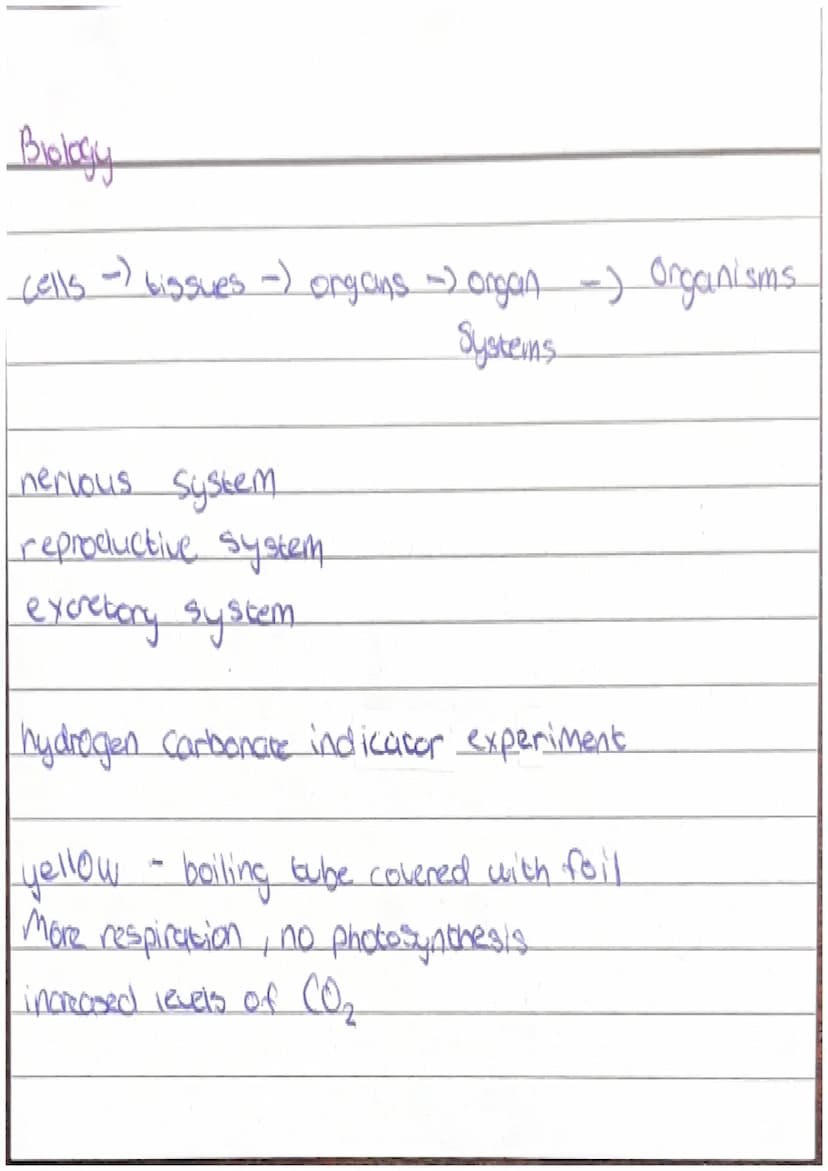 Biology
cells -> tissues -> organs -> organ -> Organisms
Systems
nervous system
reproductive system
excretory system
hydrogen carbonate indicator experiment
yellow - boiling tube covered with foil
More respiration, no photosynthesis
increased levels of CO₂